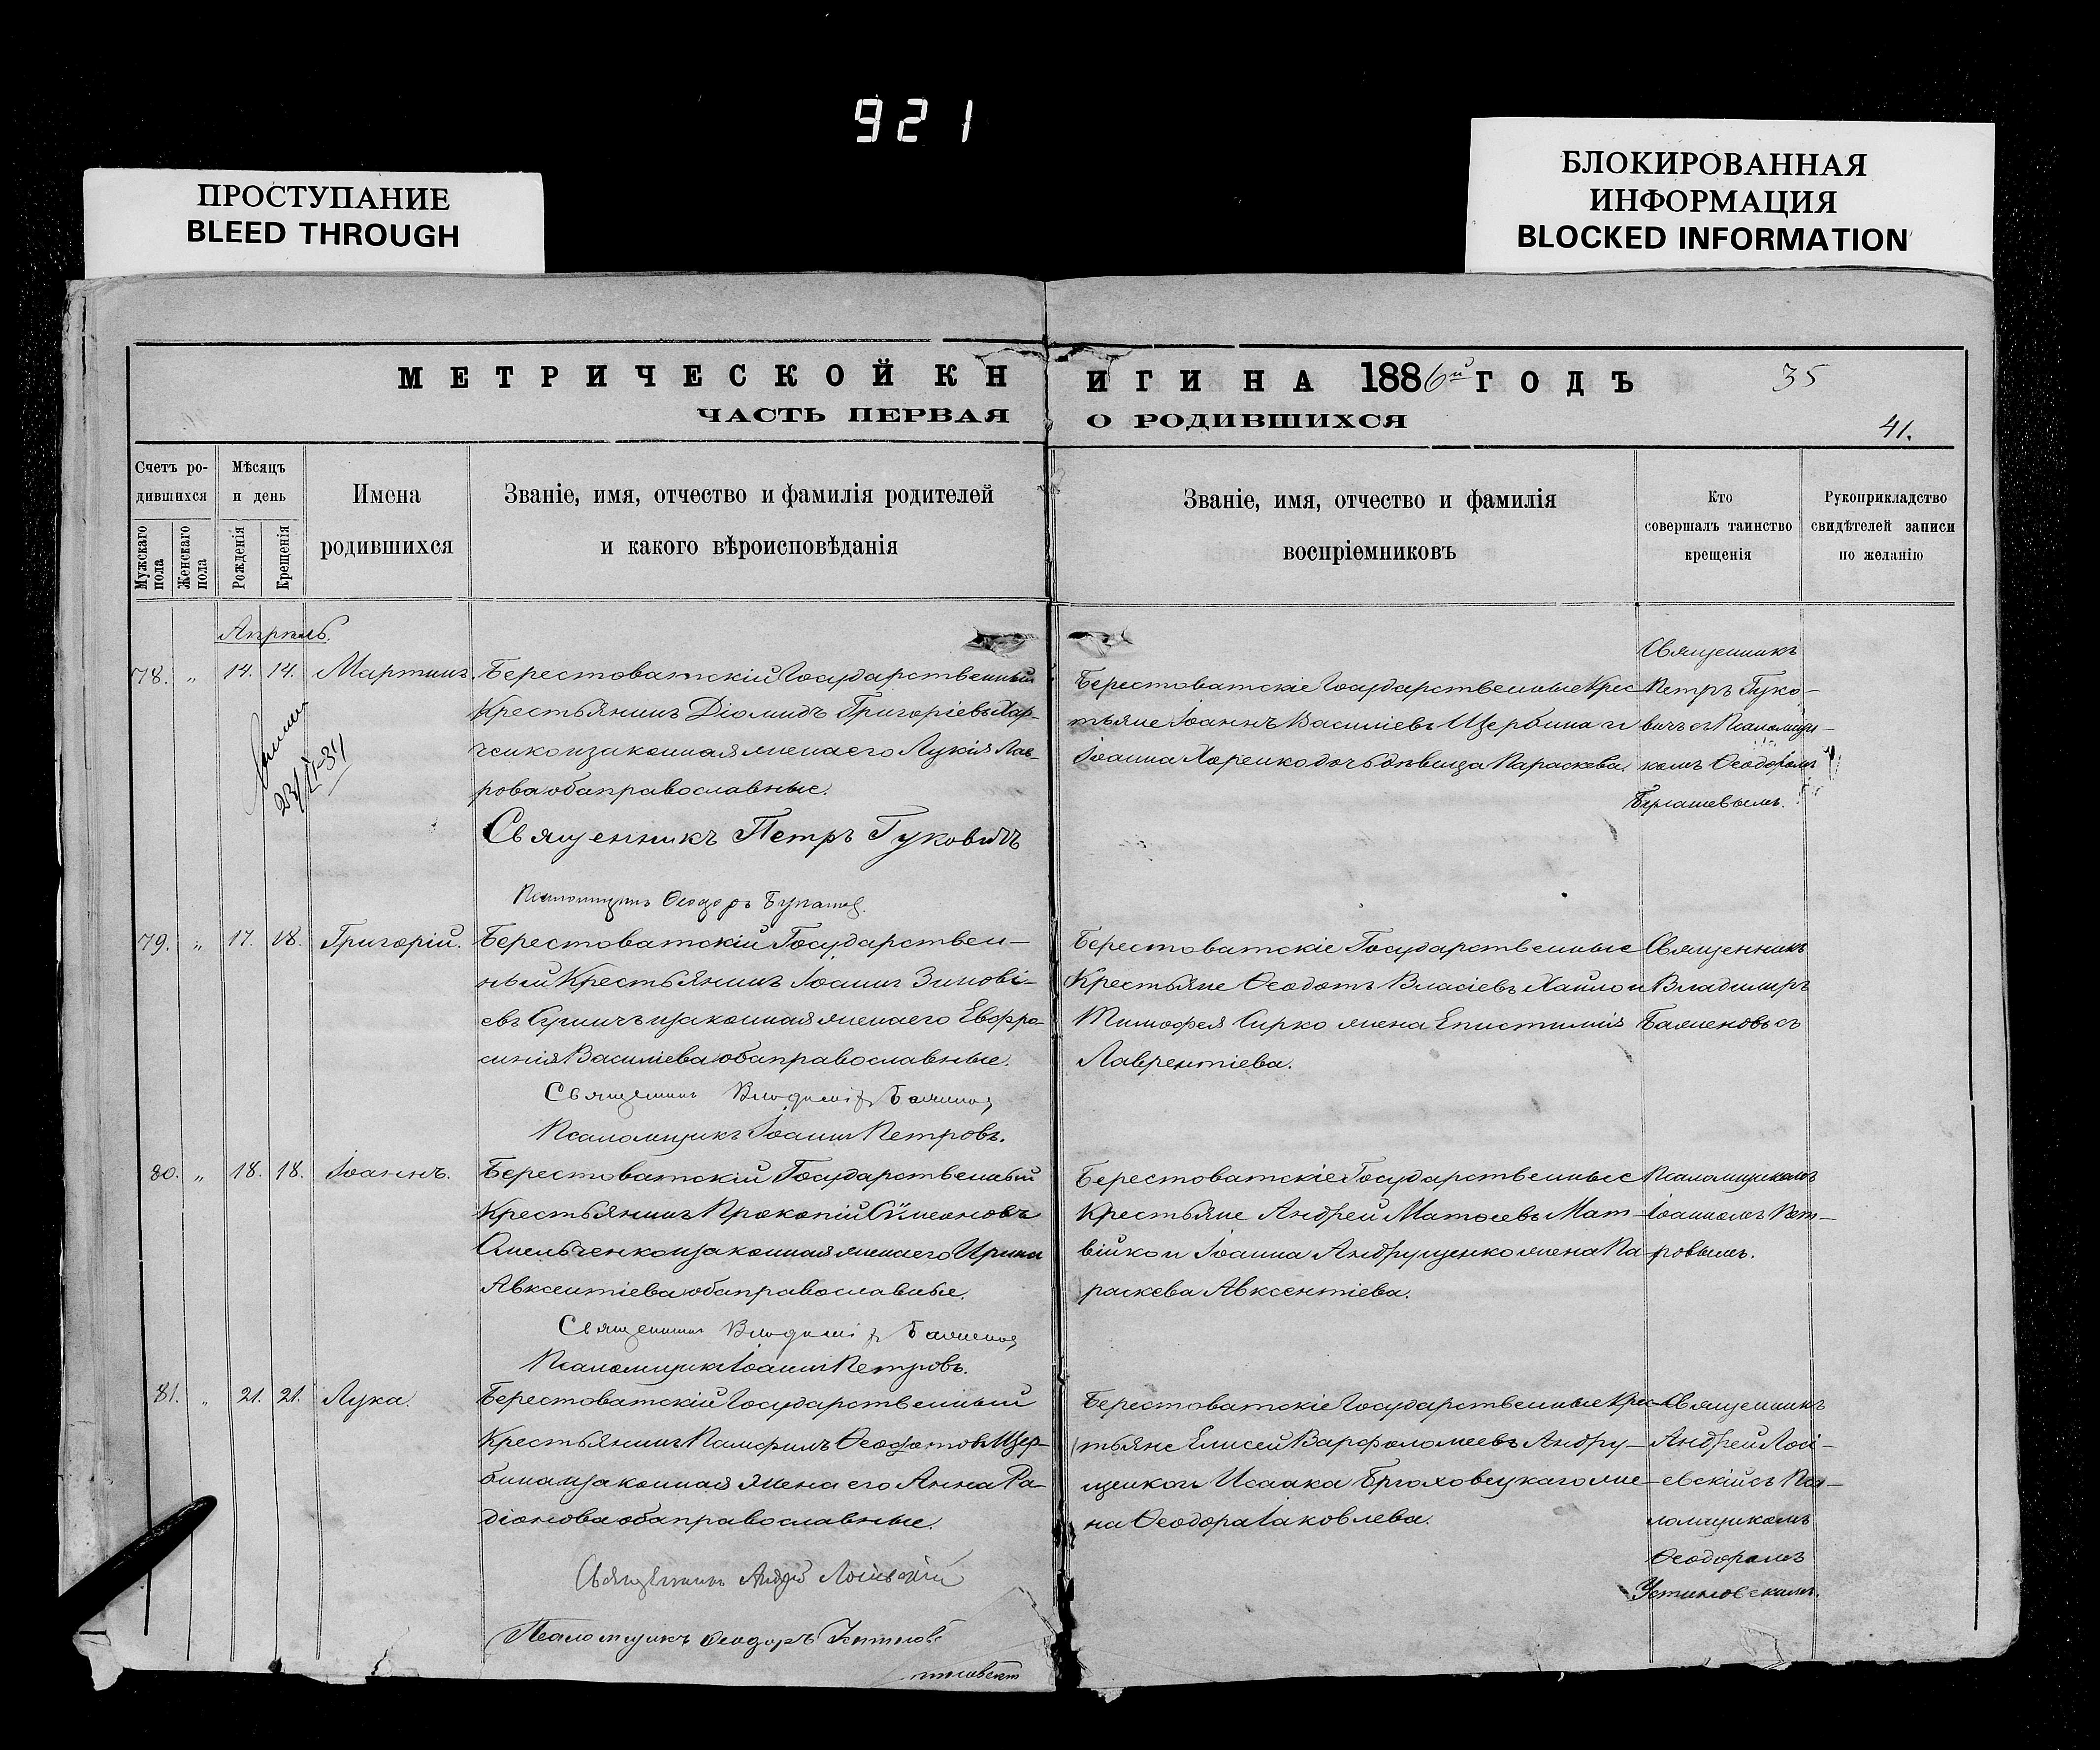 921
ПРОСТУПАНИЕ
BLEED THROUGH
БЛОКИРОВАННАЯ
ИНФОРМАЦИЯ
BLOCKED INFORMATION
МЕТРИЧЕСКОЙ КНИГИ НА 1886й ГОДЪ
35
ЧАСТЬ ПЕРВАЯ О РОДИВШИХСЯ
41.
Счетъ ро-
дившихся
Мужскаго пола
Женскаго пола
Мѣсяцъ
и день
Рожденія
Крещенія
Имена
родившихся
Званіе, имя, отчество и фамилія родителей
и какого вѣроисповѣданія
Званіе, имя, отчество и фамилія
воспріемниковъ
Кто
совершалъ таинство
крещенія
Рукоприкладство
свидѣтелей записи
по желанію
Апрѣль.
78. " 14. 14. Мартинъ.
Берестоватскій Государственный
Крестьянинъ Діомидъ Григоріевъ Хар-
ченко и законная жена его Лукія Лав-
рова оба православные.
Священникъ Петръ Гуковичъ
Псаломщикъ Ѳеодоръ
Берестоватскіе Государственные Крес-
тьяне Іоаннъ Василіевъ Щербина и
Іоанна Харенко дочь дѣвица Параскева.
Священникъ
Петръ Гуко-
вичъ съ Псаломщи-
комъ Ѳеодоромъ
79. " 17. 18. Григорій.
Берестоватскій Государствен-
ный Крестьянинъ Іоаннъ Зинові-
евъ и законная жена его Евфро-
синія Василіева оба православные.
Священникъ Владиміръ Баженовъ
Псаломщикъ Іоаннъ Петровъ.
Берестоватскіе Государственные
Крестьяне Ѳеодотъ Власіевъ Хайло и
Тимофея Сирко жена Епистимія
Лаврентіева.
Священникъ
Владимиръ
Баженовъ съ
80. " 18. 18. Іоаннъ.
Берестоватскій Государственный
Крестьянинъ Прокопій Сѵмеоновъ
Омельченко и законная жена его Ирина
Авксентіева оба православные.
Священникъ Владиміръ Баженовъ
Псаломщикъ Іоаннъ Петровъ.
Берестоватскіе Государственные
Крестьяне Андрей Матѳеевъ Мат-
війко и Іоанна Андрущенко жена Па-
раскева Авксентіева.
Псаломщикомъ
Іоанномъ Пет-
ровымъ.
81. " 21. 21. Лука.
Берестоватскій Государственный
Крестьянинъ Памфилъ Ѳеодотовъ Щер-
бина и законная жена его Анна Ра-
діонова оба православные.
Священникъ Андрей Лосіевскій
Псаломщикъ Ѳеодоръ
Берестоватскіе Государственные Крес-
тьяне Елисей Варфоломеевъ Андру-
щенко и Исаака Брюховецкаго же-
на Ѳеодора Іаковлева.
Священникъ
Андрей Лосі-
евскій съ Пса-
ломщикомъ
Ѳеодоромъ
Устиновскимъ.